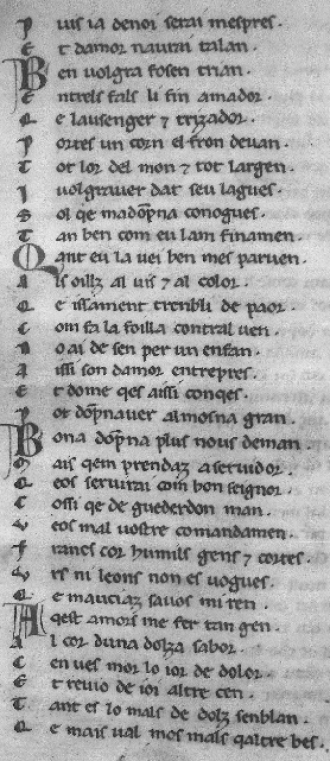 P uis ia denoi serai mespres.
E t damor naurai talan.
B en uolgra fosen trian.
E ntrels fals li fin amador.
E lausenger ⁊ trizador.
P ortes un corn el fron deuan.
T ot lor del mon ⁊ tot largen.
I uolgrauer dat seu lagues.
S ol qe madōpna conogues.
T an ben com eu lam finamen.
Q ant eu la uei ben mes paruen.
A ls oillz al uis ⁊ al color.
Q e issament trenbli de paor.
C om fa la foilla contral uen.
N o ai de sen per un enfan.
A issi son damor entrepres.
E t dome qes aissi conqes.
P ot dōpnauer almosna gran.
B ona dōpna plus nous deman.
M ais qem prendaz a seruidor.
Q eos seruirai com bon seignor.
C ossi qe de guederdon man.
V eos mal uostre comandamen.
F rancs cor humils gens ⁊ cortes.
V rs ni leons non es uogues.
Q e mauciaz sauos mi ren.
A qest amors me fer tan gen.
A l cor duna dolza sabor.
C en ues mor lo ior de dolor.
E t reuio de ioi altre cen.
T ant es lo mals de dolz senblan.
Q e mais ual mos mals qaltre bes.